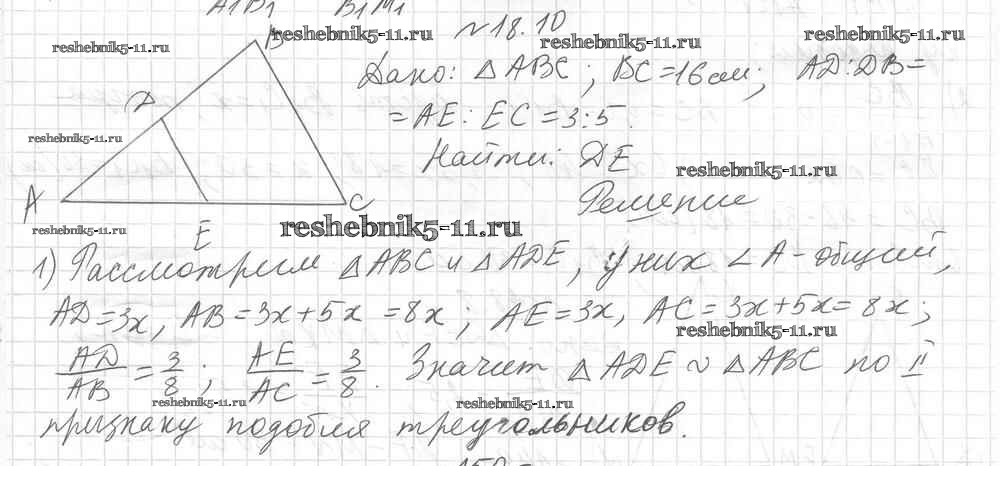 A1B1 B1M1
reshebnik5-11.ru reshebnik5-11.ru reshebnik5-11.ru reshebnik5-11.ru
№18.10
B
Дано: △ABC; BC=16см; AD:DB=
D
=AE:EC=3:5.
reshebnik5-11.ru
Найти: DE
reshebnik5-11.ru
Решение
A C
reshebnik5-11.ru reshebnik5-11.ru
E
1) Рассмотрим △ABC и △ADE, у них ∠A-общий,
AD=3x, AB=3x+5x=8x; AE=3x, AC=3x+5x=8x;
reshebnik5-11.ru
AD/AB=3/8; AE/AC=3/8. Значит △ADE ∾ △ABC по II
reshebnik5-11.ru reshebnik5-11.ru
признаку подобия треугольников.